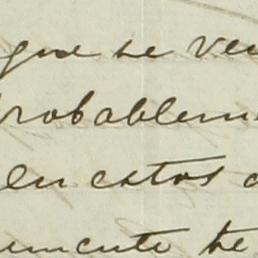 que se ve
probablem
en estos
mente he